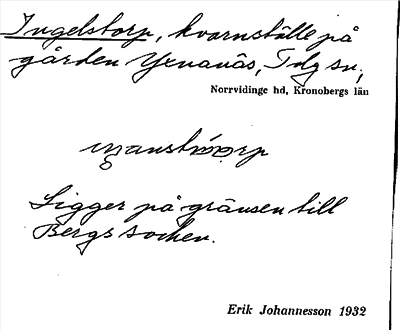 Ingelstorp, kvarnställe på
gården Yxnanäs, Tdg sn,
Norrvidinge hd, Kronobergs län
Ligger på gränsen till
Bergs socken.
Erik Johannesson 1932